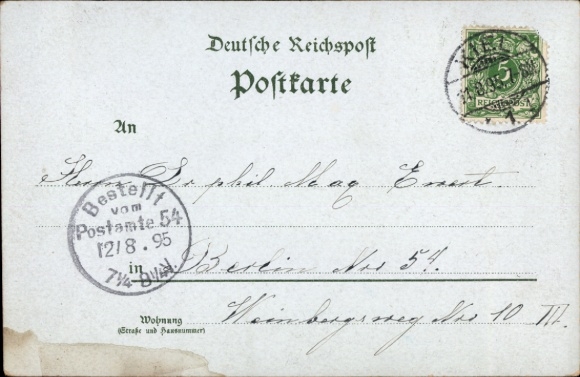 Deutsche Reichspost
Postkarte
KIEL
5
REICHSPOST
1.
An
Herrn Dr phil Max Ewert.
Bestellt
vom
Postamte 54
12/8.95
7¼-8¼V.
in Berlin Nro 54.
Wohnung
(Straße und Hausnummer)
Weinbergsweg Nro 10 III.